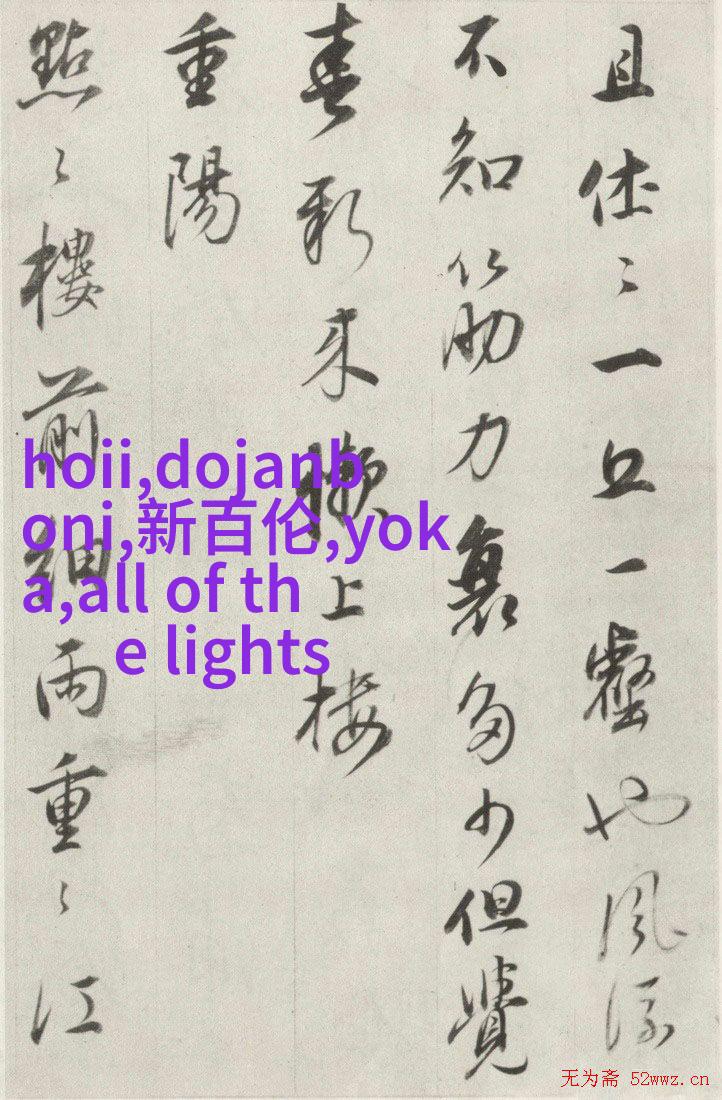 且休〻一丘一壑也風流
不知筋力衰多少但覺
春新来懶上楼
重陽
點〻樓前細雨重〻江
hoii,dojanb
oni,新百伦,yok
a,all of th
e lights
无为斋 52wwz.cn